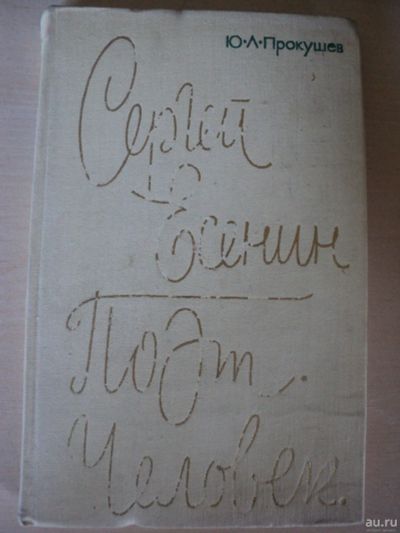 Ю·Л·Прокушев
Сергей
Есенин
Поэт.
Человек.
au.ru